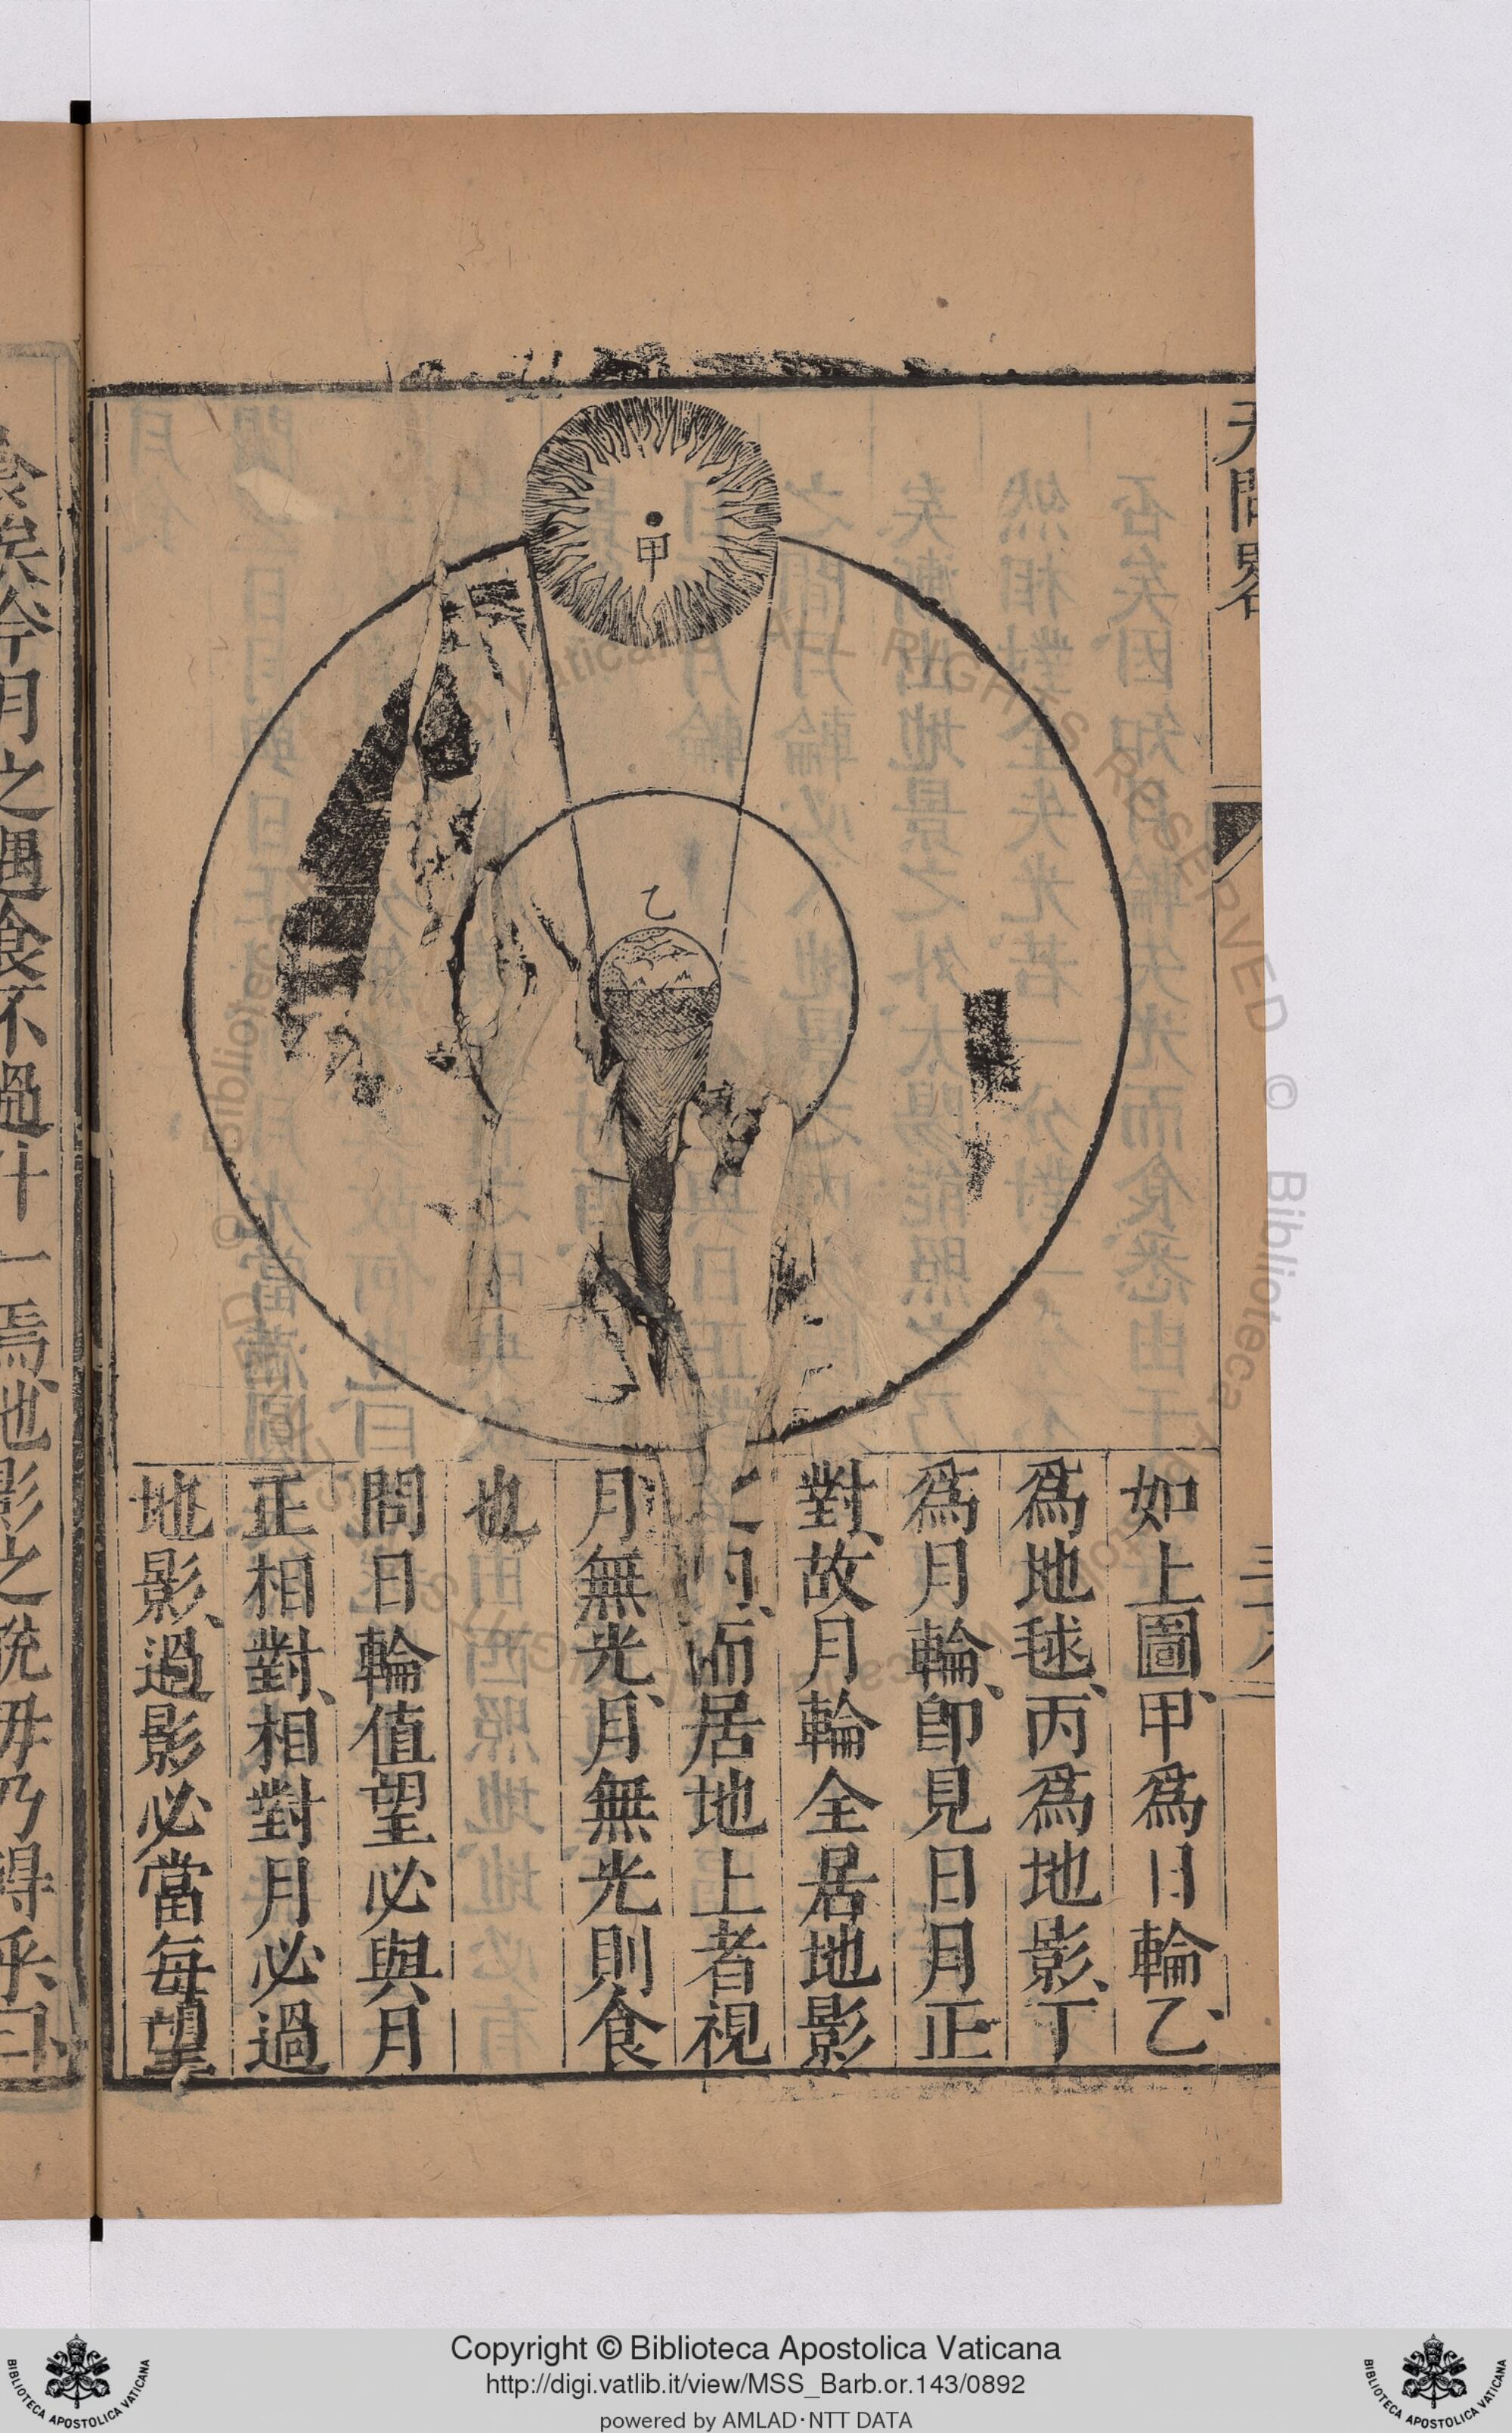 天問畧
甲
乙
如上圖甲、爲日輪乙、
爲地毬、丙爲地影、丁
爲月輪、卽見日月正
對、故月輪全居地影
之內、而居地上者視
月無光、月無光則食
也
問日輪值望必與月
正相對、相對月必過
地影、過影必當每望
食矣今月之遇食不過十一焉、地影之說毋乃得乎、曰
Copyright © Biblioteca Apostolica Vaticana
http://digi.vatlib.it/view/MSS_Barb.or.143/0892
powered by AMLAD·NTT DATA
BIBLIOTECA APOSTOLICA VATICANA
BIBLIOTECA APOSTOLICA VATICANA